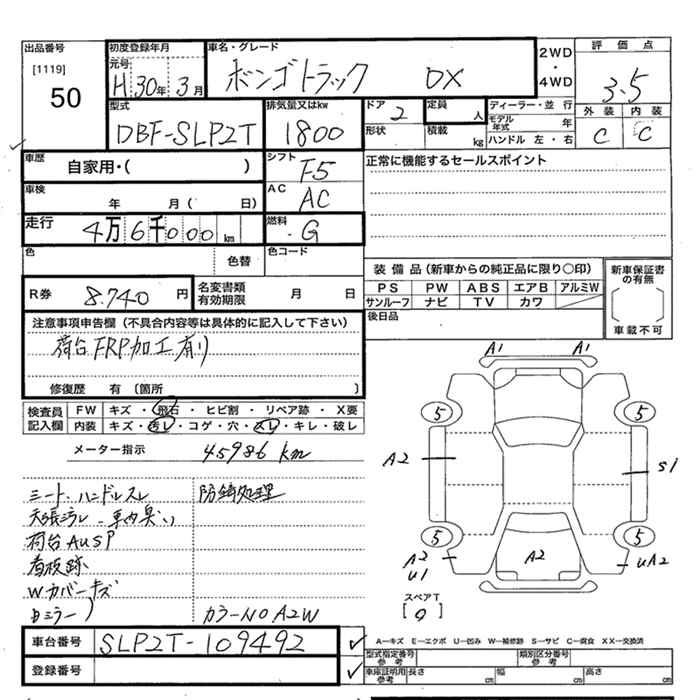 出品番号
[1119]
50
初度登録年月
元号
H 30年 3月
車名・グレード
ボンゴトラック DX
2WD
・
4WD
評価点
3.5
外装 内装
C C
型式
DBF-SLP2T
排気量又はkw
1800
ドア
2
形状
定員
人
積載
kg
ディーラー・並行
モデル年式 年
ハンドル 左・右
車歴
自家用・( )
シフト
F5
正常に機能するセールスポイント
車検
年 月( 日)
AC
AC
走行
4万6千000km
燃料
G
色
色替
色コード
R券
8.740円
名変書類
有効期限
月 日
装備品(新車からの純正品に限り○印)
PS PW ABS エアB アルミW
サンルーフ ナビ TV カワ
新車保証書
の有無
車載不可
後日品
注意事項申告欄(不具合内容等は具体的に記入して下さい)
荷台FRP加工有り
修復歴 有〔箇所
検査員
記入欄
FW キズ・飛石・ヒビ割・リペア跡・X要
内装 キズ・汚レ・コゲ・穴・スレ・キレ・破レ
メーター指示 45986 km
シート、ハンドルスレ 防錆処理
天張汚レ、車内臭い
荷台AUSP
看板跡
Wカバーキズ
カラーNO A2W
車台番号 SLP2T-109492
登録番号
A1 A1
5 5
A2 S1
5 5
A2
U1
A2
UA2
スペアT
A―キズ E―エクボ U―凹み W―補修跡 S―サビ C―腐食 XX―交換済
型式指定番号
参考
類別区分番号
参考
車庫証明用
参考
長さ cm 幅 cm 高さ cm